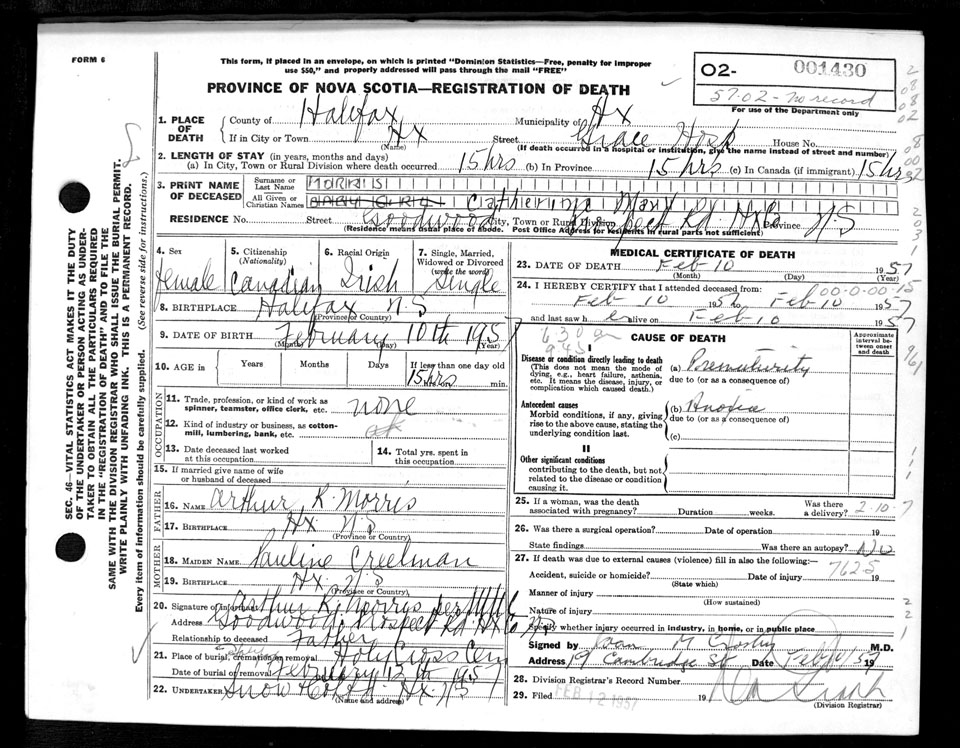 FORM 6
This form, if placed in an envelope, on which is printed "Dominion Statistics—Free, penalty for improper
use $50," and properly addressed will pass through the mail "FREE"
PROVINCE OF NOVA SCOTIA—REGISTRATION OF DEATH
O2- 001430
57-02-No record
For use of the Department only
1. PLACE OF DEATH
County of Halifax Municipality of Hx
If in City or Town Hx Street Grace Hosp House No.
(Name) (If death occurred in a hospital or institution, give the name instead of street and number)
2. LENGTH OF STAY (in years, months and days)
(a) In City, Town or Rural Division where death occurred 15 hrs (b) In Province 15 hrs (c) In Canada (if immigrant) 15 hrs
3. PRINT NAME OF DECEASED
Surname or Last Name MORRIS
All Given or Christian Names BABY GIRL Catherine Mary
RESIDENCE No. Street Goodwood City, Town or Rural Division Prospect Rd. Hx Co Province N S
(Residence means usual place of abode. Post Office Address for residents in rural parts not sufficient)
4. Sex
female
5. Citizenship (Nationality)
Canadian
6. Racial Origin
Irish
7. Single, Married, Widowed or Divorced (write the word)
Single
8. BIRTHPLACE Halifax N.S
(Province or Country)
9. DATE OF BIRTH February 10th 1957
(Month) (Day) (Year)
10. AGE in Years Months Days If less than one day old
15 hrs or min.
OCCUPATION
11. Trade, profession, or kind of work as spinner, teamster, office clerk, etc. none
12. Kind of industry or business, as cotton-mill, lumbering, bank, etc.
13. Date deceased last worked at this occupation
14. Total yrs. spent in this occupation
15. If married give name of wife or husband of deceased
FATHER
16. NAME Arthur R. Morris
17. BIRTHPLACE Hx N.S
(Province or Country)
MOTHER
18. MAIDEN NAME Pauline Creelman
19. BIRTHPLACE Hx. N.S
(Province or Country)
20. Signature of informant Arthur R. Morris per
Address Goodwood Prospect Rd. Hx Co N.S
Relationship to deceased Father
21. Place of burial, cremation or removal Holy Cross Cem
Date of burial or removal February 12th 1957
22. UNDERTAKER Snow Co Ltd Hx N S
(Name and address)
MEDICAL CERTIFICATE OF DEATH
23. DATE OF DEATH Feb 10 1957
(Month) (Day) (Year)
24. I HEREBY CERTIFY that I attended deceased from:
Feb 10 1957 to Feb 10 1957
and last saw h er alive on Feb 10 1957
CAUSE OF DEATH
Approximate interval between onset and death
I
Disease or condition directly leading to death
(This does not mean the mode of dying, e.g., heart failure, asthenia, etc. It means the disease, injury, or complication which caused death.)
(a) Prematurity
due to (or as a consequence of)
Antecedent causes
Morbid conditions, if any, giving rise to the above cause, stating the underlying condition last.
(b) Anoxia
due to (or as a consequence of)
(c)
II
Other significant conditions
contributing to the death, but not related to the disease or condition causing it.
25. If a woman, was the death associated with pregnancy? Duration weeks. Was there a delivery? 2-10-7
26. Was there a surgical operation? Date of operation 19
State findings Was there an autopsy? No
27. If death was due to external causes (violence) fill in also the following:—
7625
Accident, suicide or homicide? Date of injury 19
(State which)
Manner of injury
(How sustained)
Nature of injury
Specify whether injury occurred in industry, in home, or in public place
Signed by M.D.
Address 19 Cambridge St Date Feb 1957
28. Division Registrar's Record Number
29. Filed FEB 12 1957 19
(Division Registrar)
SEC. 46—VITAL STATISTICS ACT MAKES IT THE DUTY
OF THE UNDERTAKER OR PERSON ACTING AS UNDER-
TAKER TO OBTAIN ALL THE PARTICULARS REQUIRED
IN THE "REGISTRATION OF DEATH" AND TO FILE THE
SAME WITH THE DIVISION REGISTRAR WHO SHALL ISSUE THE BURIAL PERMIT.
WRITE PLAINLY WITH UNFADING INK. THIS IS A PERMANENT RECORD.
Every item of information should be carefully supplied. (See reverse side for instructions.)